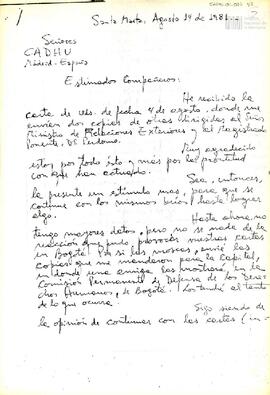 Santa Marta, Agosto 14 de 1981
Señores
CADHU
Madrid - España
Estimados Compañeros:
He recibido la
carta de uds. de fecha 4 de agosto, donde me
envían dos copias de otras dirigidas al Señor
Ministro de Relaciones Exteriores y al Magistrado
Ponente, Perdomo.
Muy agradecido
estoy por todo ésto y más por la prontitud
con que han actuado.
Sea, entonces,
la presente un estímulo mas, para que se
continue con los mismos bríos hasta lograr
algo.
Hasta ahora, no
tengo mayores datos, pero no se nada de la
reacción que pudo provocar nuestras cartas
en Bogotá. Por si las moscas, envié las
copias que me mandaron para la Capital,
en donde una amiga las mostrará, en la
Comisión Permanente de Defensa de los Dere
chos Humanos, de Bogotá. Los tendré al tanto
de lo que ocurra.
Sigo siendo de
la opinión de continuar con las cartas (in-